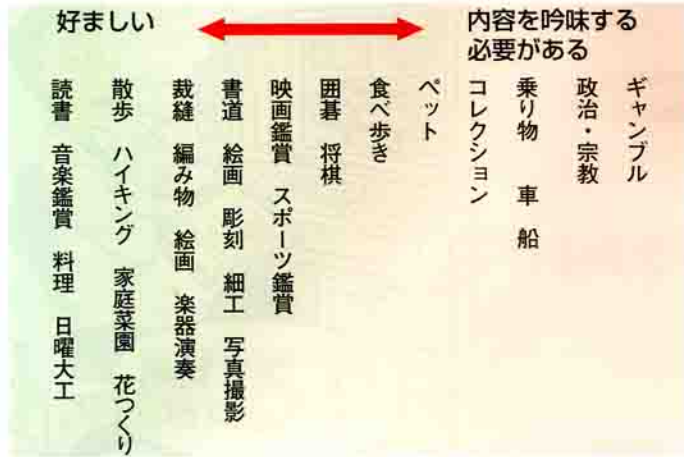 好ましい
内容を吟味する
必要がある
ギャンブル
政治・宗教
乗り物 車 船
コレクション
ペット
食べ歩き
囲碁 将棋
映画鑑賞 スポーツ鑑賞
書道 絵画 彫刻 細工 写真撮影
裁縫 編み物 絵画 楽器演奏
散歩 ハイキング 家庭菜園 花つくり
読書 音楽鑑賞 料理 日曜大工